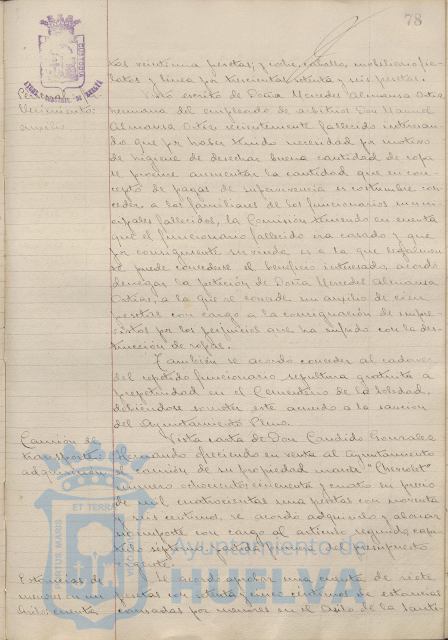 78
tas veintiuna pesetas; y coche, caballo, mobiliario, fia-
y línea por trescientas setenta y seis pesetas.
Visto escrito de Doña Mercedes Almansa Ortiz
hermana del empleado de arbitrios Don Manuel
Almansa Ortiz recientemente fallecido interesan-
do que por haber tenido necesidad por motivo
de higiene de desechar buena cantidad de ropa
se procure aumentar la cantidad que en con-
cepto de pagas de supervivencia es costumbre con-
ceder a los familiares de los funcionarios muni-
cipales fallecidos, la Comisión teniendo en cuenta
que el funcionario fallecido era casado y que
por consiguiente su viuda es a la que legalmen-
te se puede concederse el beneficio interesado, acordó
denegar la petición de Doña Mercedes Almansa
Ortiz, a la que se concede un auxilio de cien
pesetas con cargo a la consignación de impre-
vistos por los perjuicios que ha sufrido con la des-
trucción de ropas.
También se acordó conceder al cadaver
del repetido funcionario sepultura gratuita a
perpetuidad en el Cementerio de la Soledad,
debiéndose someter este acuerdo a la sanción
del Ayuntamiento Pleno.
Camión de
transportes
adquisición
Vista carta de Don Candido Gonzalez
Hernando ofreciendo en venta al Ayuntamiento
el camión de su propiedad marca "Chevrolet"
número ochocientos cincuenta y cuatro en precio
de mil cuatrocientas una pesetas con noventa
y seis centimos, se acordó adquirirlo y abonar
su importe con cargo al articulo segundo, capi-
tulo septimo, partida del presupuesto
vigente.
Estancias de
menores en un
Asilo: cuenta
Se acordó aprobar una cuenta de siete
pesetas con setenta y cinco centimos de estancias
causadas por menores en el Asilo de la Santi-
Ayuntamiento de
HUELVA